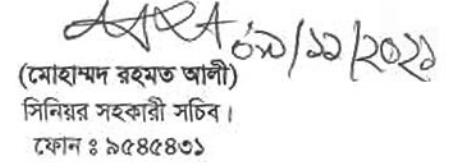 ০৯/১১/২০২১
(মোহাম্মদ রহমত আলী)
সিনিয়র সহকারী সচিব।
ফোন ঃ ৯৫৪৫৪৩১